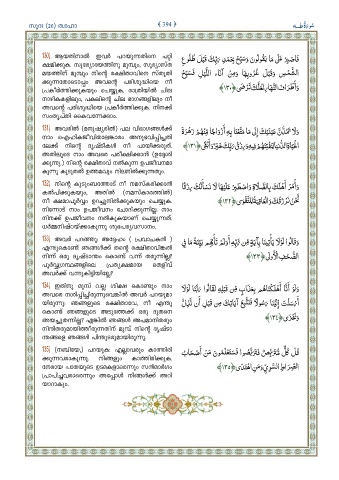 സൂറ (20) ത്വാഹാ
﴾ 394 ﴿
سُورَةُ طـه
130) ആയതിനാല്‍ ഇവര്‍ പറയുന്നതിനെ പറ്റി
ക്ഷമിക്കുക. സൂര്യോദയത്തിനു മുമ്പും, സൂര്യാസ്ത
മയത്തിന് മുമ്പും നിന്റെ രക്ഷിതാവിനെ സ്തുതി
ക്കുന്നതോടൊപ്പം അവന്റെ പരിശുദ്ധിയെ നീ
പ്രകീര്‍ത്തിക്കുകയും ചെയ്യുക. രാത്രിയില്‍ ചില
നാഴികകളിലും, പകലിന്റെ ചില ഭാഗങ്ങളിലും നീ
അവന്റെ പരിശുദ്ധിയെ പ്രകീര്‍ത്തിക്കുക. നിനക്ക്
സംതൃപ്തി കൈവന്നേക്കാം.
فَاصْبِرْ عَلَىٰ مَا يَقُولُونَ وَسَبِّحْ بِحَمْدِ رَبِّكَ قَبْلَ طُلُوعِ
الشَّمْسِ وَقَبْلَ غُرُوبِهَا وَمِنْ آنَاءِ اللَّيْلِ فَسَبِّحْ
وَأَطْرَافَ النَّهَارِ لَعَلَّكَ تَرْضَىٰ ﴿١٣٠﴾
131) അവരില്‍ (മനുഷ്യരില്‍) പല വിഭാഗങ്ങള്‍ക്ക്
നാം ഐഹികജീവിതാലങ്കാരം അനുഭവിപ്പിച്ചതി
ലേക്ക് നിന്റെ ദൃഷ്ടികള്‍ നീ പായിക്കരുത്.
അതിലൂടെ നാം അവരെ പരീക്ഷിക്കാന്‍ (ഉദ്ദേശി
ക്കുന്നു.) നിന്റെ രക്ഷിതാവ് നല്‍കുന്ന ഉപജീവനമാ
കുന്നു കൂടുതല്‍ ഉത്തമവും നിലനില്‍ക്കുന്നതും.
وَلَا تَمُدَّنَّ عَيْنَيْكَ إِلَىٰ مَا مَتَّعْنَا بِهِ أَزْوَاجًا مِنْهُمْ زَهْرَةَ
الْحَيَاةِ الدُّنْيَا لِنَفْتِنَهُمْ فِيهِ وَرِزْقُ رَبِّكَ خَيْرٌ وَأَبْقَىٰ ﴿١٣١﴾
132) നിന്റെ കുടുംബത്തോട് നീ നമസ്കരിക്കാന്‍
കല്‍പിക്കുകയും, അതില്‍ (നമസ്കാരത്തില്‍)
നീ ക്ഷമാപൂര്‍വ്വം ഉറച്ചുനില്‍ക്കുകയും ചെയ്യുക.
നിന്നോട് നാം ഉപജീവനം ചോദിക്കുന്നില്ല. നാം
നിനക്ക് ഉപജീവനം നല്‍കുകയാണ് ചെയ്യുന്നത്.
ധര്‍മ്മനിഷ്ഠയ്ക്കാകുന്നു ശുഭപര്യവസാനം.
وَأْمُرْ أَهْلَكَ بِالصَّلَاةِ وَاصْطَبِرْ عَلَيْهَا لَا نَسْأَلُكَ رِزْقًا
نَحْنُ نَرْزُقُكَ وَالْعَاقِبَةُ لِلتَّقْوَىٰ ﴿١٣٢﴾
133) അവര്‍ പറഞ്ഞു: അദ്ദേഹം (പ്രവാചകന്‍)
എന്തുകൊണ്ട് ഞങ്ങള്‍ക്ക് തന്റെ രക്ഷിതാവിങ്കല്‍
നിന്ന് ഒരു ദൃഷ്ടാന്തം കൊണ്ട് വന്ന് തരുന്നില്ല?
പൂര്‍വ്വഗ്രന്ഥങ്ങളിലെ പ്രത്യക്ഷമായ തെളിവ്
അവര്‍ക്ക് വന്നുകിട്ടിയില്ലേ?
وَقَالُوا لَوْلَا يَأْتِينَا بِآيَةٍ مِنْ رَبِّهِ أَوَلَمْ تَأْتِهِمْ بَيِّنَةُ مَا فِي
الصُّحُفِ الْأُولَىٰ ﴿١٣٣﴾
134) ഇതിനു മുമ്പ് വല്ല ശിക്ഷ കൊണ്ടും നാം
അവരെ നശിപ്പിച്ചിരുന്നുവെങ്കില്‍ അവര്‍ പറയുമാ
യിരുന്നു: ഞങ്ങളുടെ രക്ഷിതാവേ, നീ എന്തു
കൊണ്ട് ഞങ്ങളുടെ അടുത്തേക്ക് ഒരു ദൂതനെ
അയച്ചുതന്നില്ല? എങ്കില്‍ ഞങ്ങള്‍ അപമാനിതരും
നിന്ദിതരുമായിത്തീരുന്നതിന് മുമ്പ് നിന്റെ ദൃഷ്ടാ
ന്തങ്ങളെ ഞങ്ങള്‍ പിന്തുടരുമായിരുന്നു.
وَلَوْ أَنَّا أَهْلَكْنَاهُمْ بِعَذَابٍ مِنْ قَبْلِهِ لَقَالُوا رَبَّنَا لَوْلَا
أَرْسَلْتَ إِلَيْنَا رَسُولًا فَنَتَّبِعَ آيَاتِكَ مِنْ قَبْلِ أَنْ نَذِلَّ
وَنَخْزَىٰ ﴿١٣٤﴾
135) (നബിയേ,) പറയുക: എല്ലാവരും കാത്തിരി
ക്കുന്നവരാകുന്നു. നിങ്ങളും കാത്തിരിക്കുക.
നേരായ പാതയുടെ ഉടമകളാരെന്നും സന്മാര്‍ഗം
പ്രാപിച്ചവരാരെന്നും അപ്പോള്‍ നിങ്ങള്‍ക്ക് അറി
യാറാകും.
قُلْ كُلٌّ مُتَرَبِّصٌ فَتَرَبَّصُوا فَسَتَعْلَمُونَ مَنْ أَصْحَابُ
الصِّرَاطِ السَّوِيِّ وَمَنِ اهْتَدَىٰ ﴿١٣٥﴾